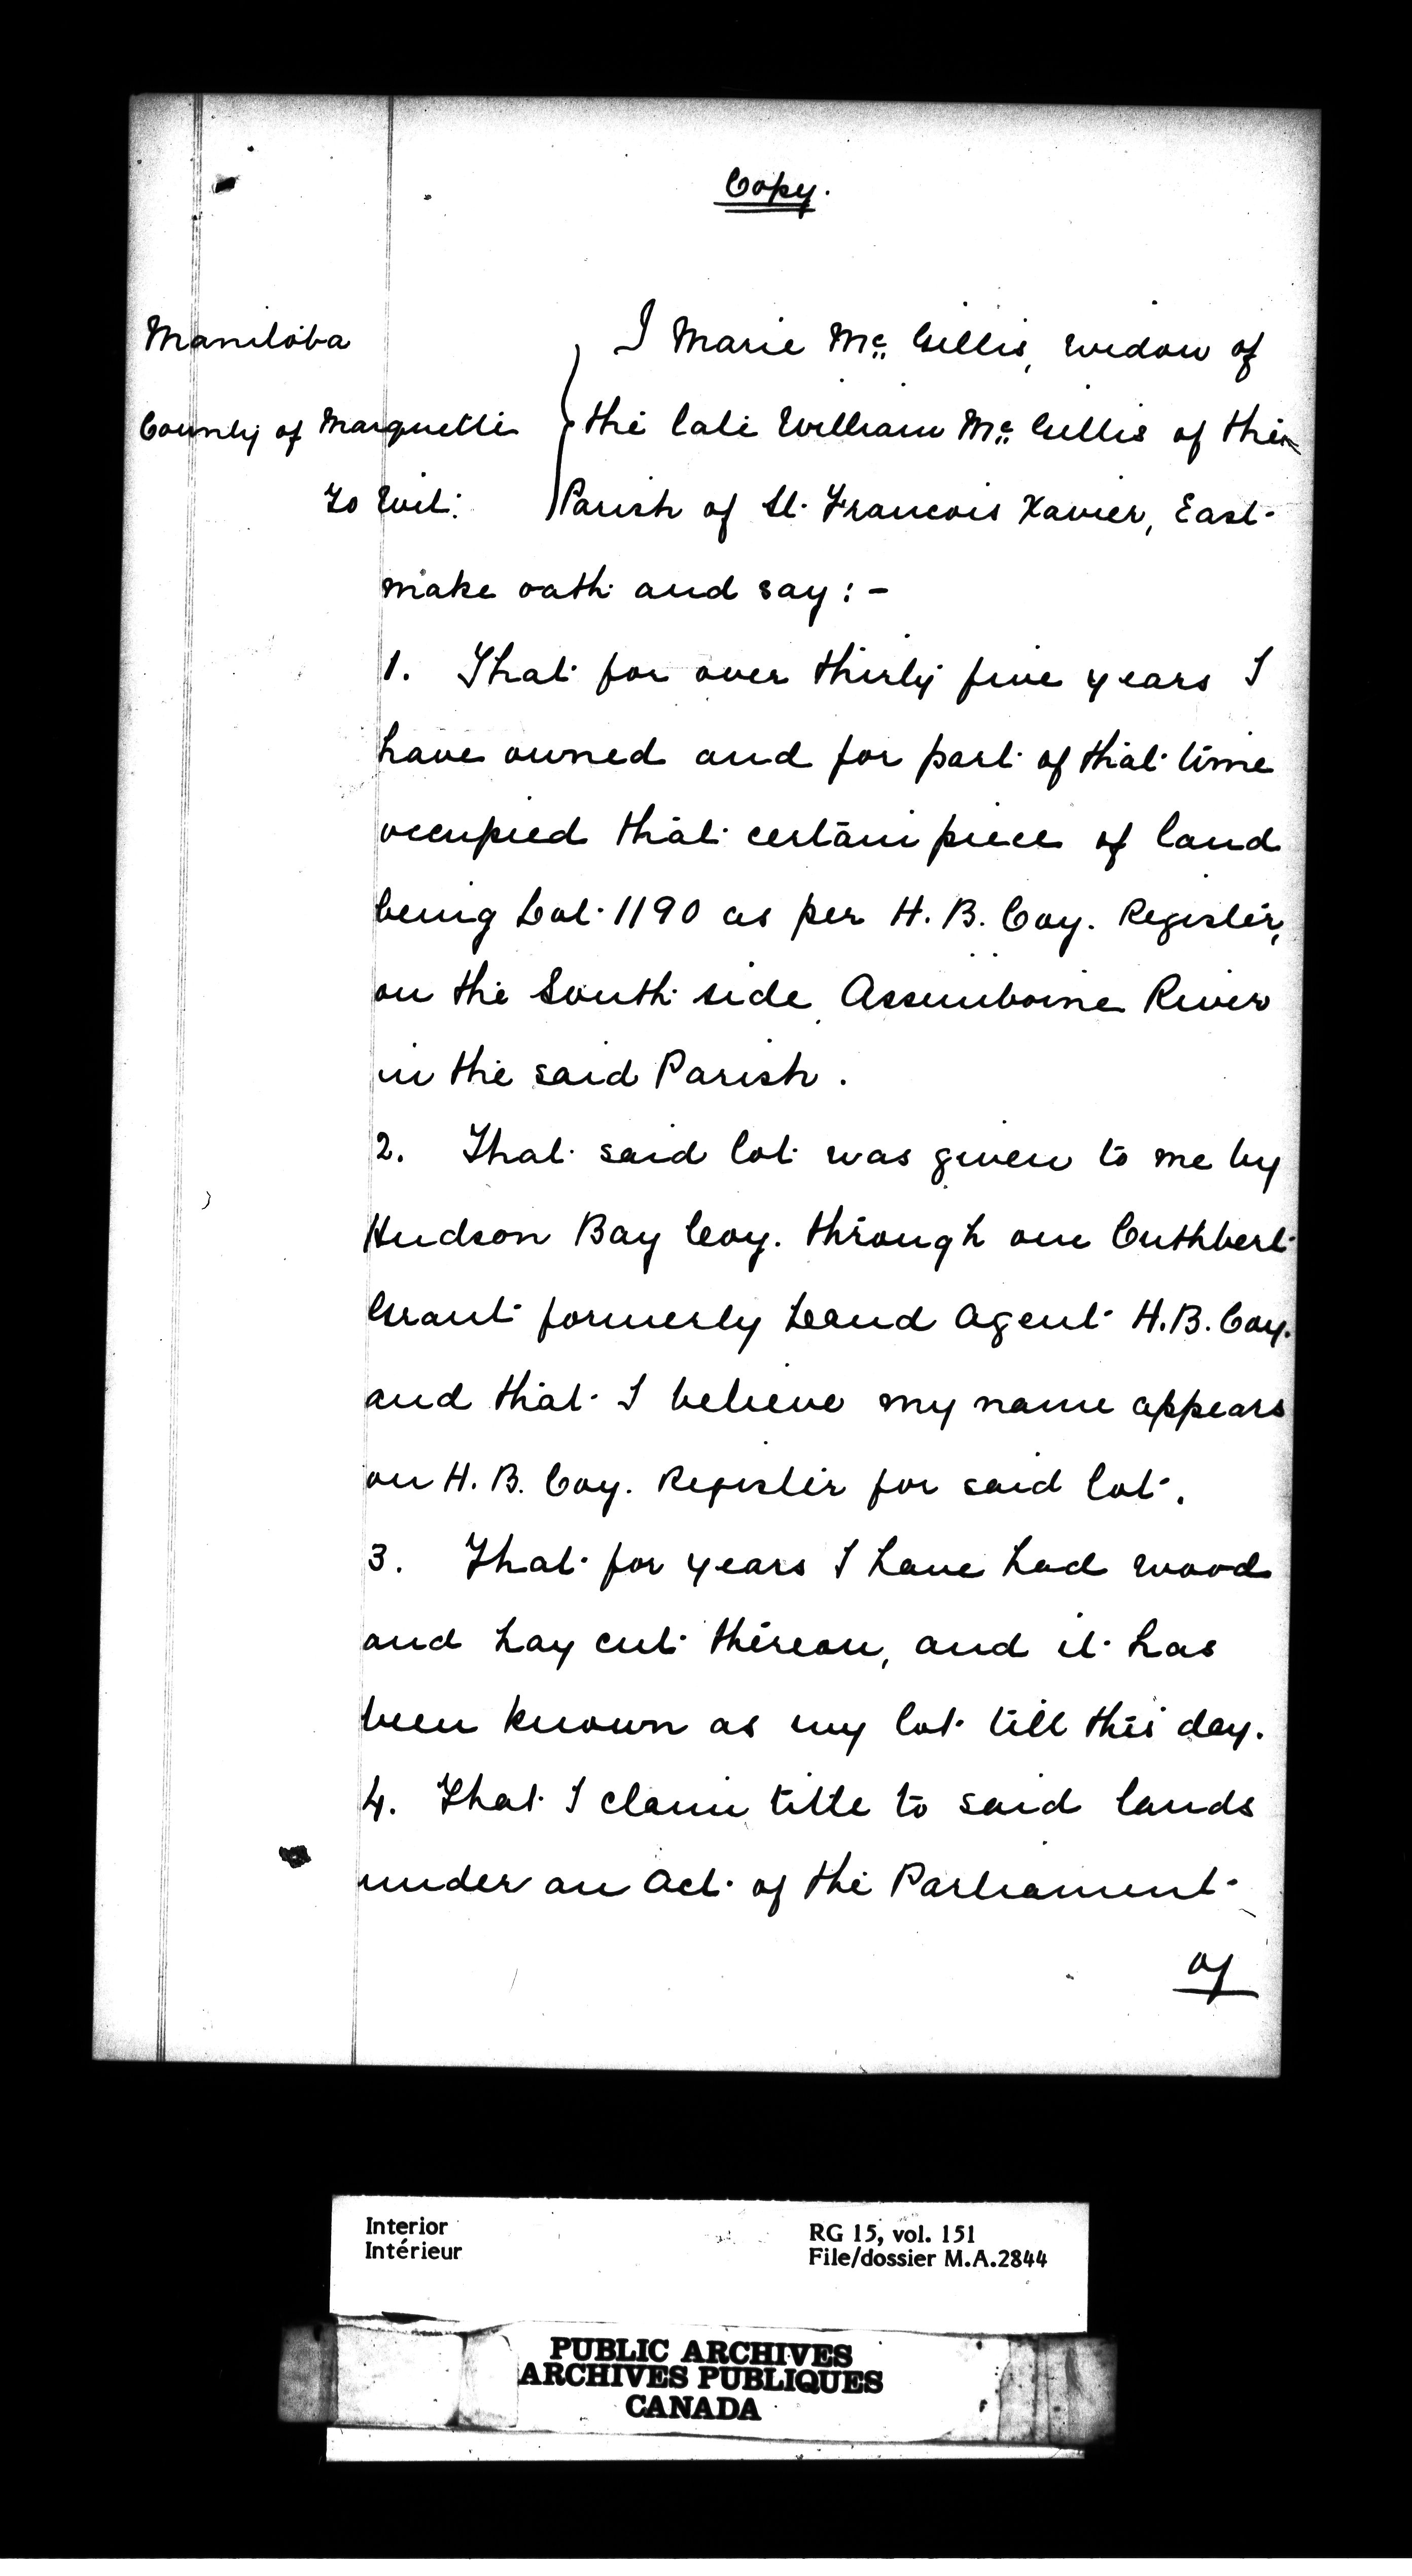 Copy.
Manitoba
County of Marquette
To Wit:
I Marie Mc Gillis, widow of
the late William Mc Gillis of the
Parish of St. Francois Xavier, East
make oath and say:-
1. That for over thirty five years I
have owned and for part of that time
occupied that certain piece of land
being Lot 1190 as per H. B. Coy. Register,
on the South side Assiniboine River
in the said Parish.
2. That said lot was given to me by
Hudson Bay Coy. through one Cuthbert
Grant formerly Land Agent H.B. Coy.
and that I believe my name appears
on H. B. Coy. Register for said lot.
3. That for years I have had wood
and hay cut thereon, and it has
been known as my lot till this day.
4. That I claim title to said lands
under an Act of the Parliament
of
Interior
Intérieur
RG 15, vol. 151
File/dossier M.A.2844
PUBLIC ARCHIVES
ARCHIVES PUBLIQUES
CANADA